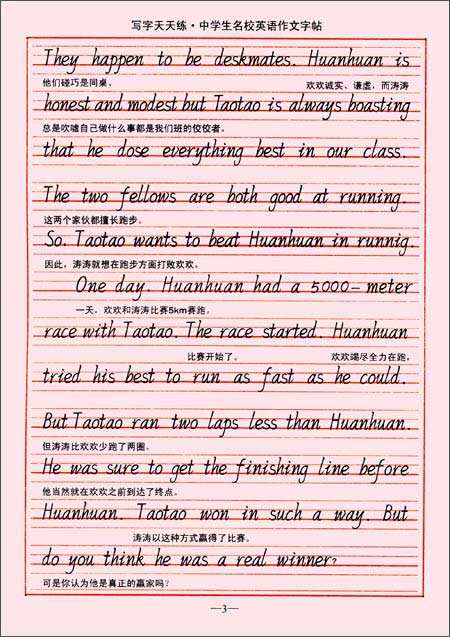 写字天天练·中学生名校英语作文字帖
They happen to be deskmates. Huanhuan is
他们碰巧是同桌。 欢欢诚实、谦虚，而涛涛
honest and modest but Taotao is always boasting
总是吹嘘自己做什么事都是我们班的佼佼者。
that he dose everything best in our class.
The two fellows are both good at running.
这两个家伙都擅长跑步。
So. Taotao wants to beat Huanhuan in runnig.
因此，涛涛就想在跑步方面打败欢欢。
One day. Huanhuan had a 5000-meter
一天，欢欢和涛涛比赛5km赛跑。
race with Taotao. The race started. Huanhuan
比赛开始了。 欢欢竭尽全力在跑，
tried his best to run as fast as he could.
But Taotao ran two laps less than Huanhuan.
但涛涛比欢欢少跑了两圈。
He was sure to get the finishing line before
他当然就在欢欢之前到达了终点。
Huanhuan. Taotao won in such a way. But
涛涛以这种方式赢得了比赛。
do you think he was a real winner?
可是你认为他是真正的赢家吗?
—3—